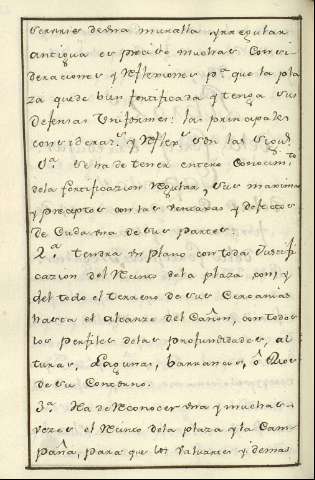 servirse de una muralla yrregular
antigua es preciso muchas Consi
deraciones y Reflexiones p.ª que la pla
za quede bien fortificada y tenga sus
Defensas Uniformes: las principales
considerac.s y Reflex.s son las sigu.s
1.ª Se ha de tener entero Conocim.to
dela fortificazion regular, sus maximas
y preceptos con las ventajas y defectos
de Cada una de sus partes.
2.ª tendra un plano con toda Justifi
cazion del Recinto dela plaza, con y
del todo el terreno de sus Cercanias
hasta el alcanze del Cañon, con todos
los perfiles delas profundidades, al
turas, Lagunas, barrancos, ô Rios
de su Contorno.
3.ª Ha de Reconocer una y muchas
vezes el Recinto dela plaza y la Cam
paña, para que los valuartes y demas